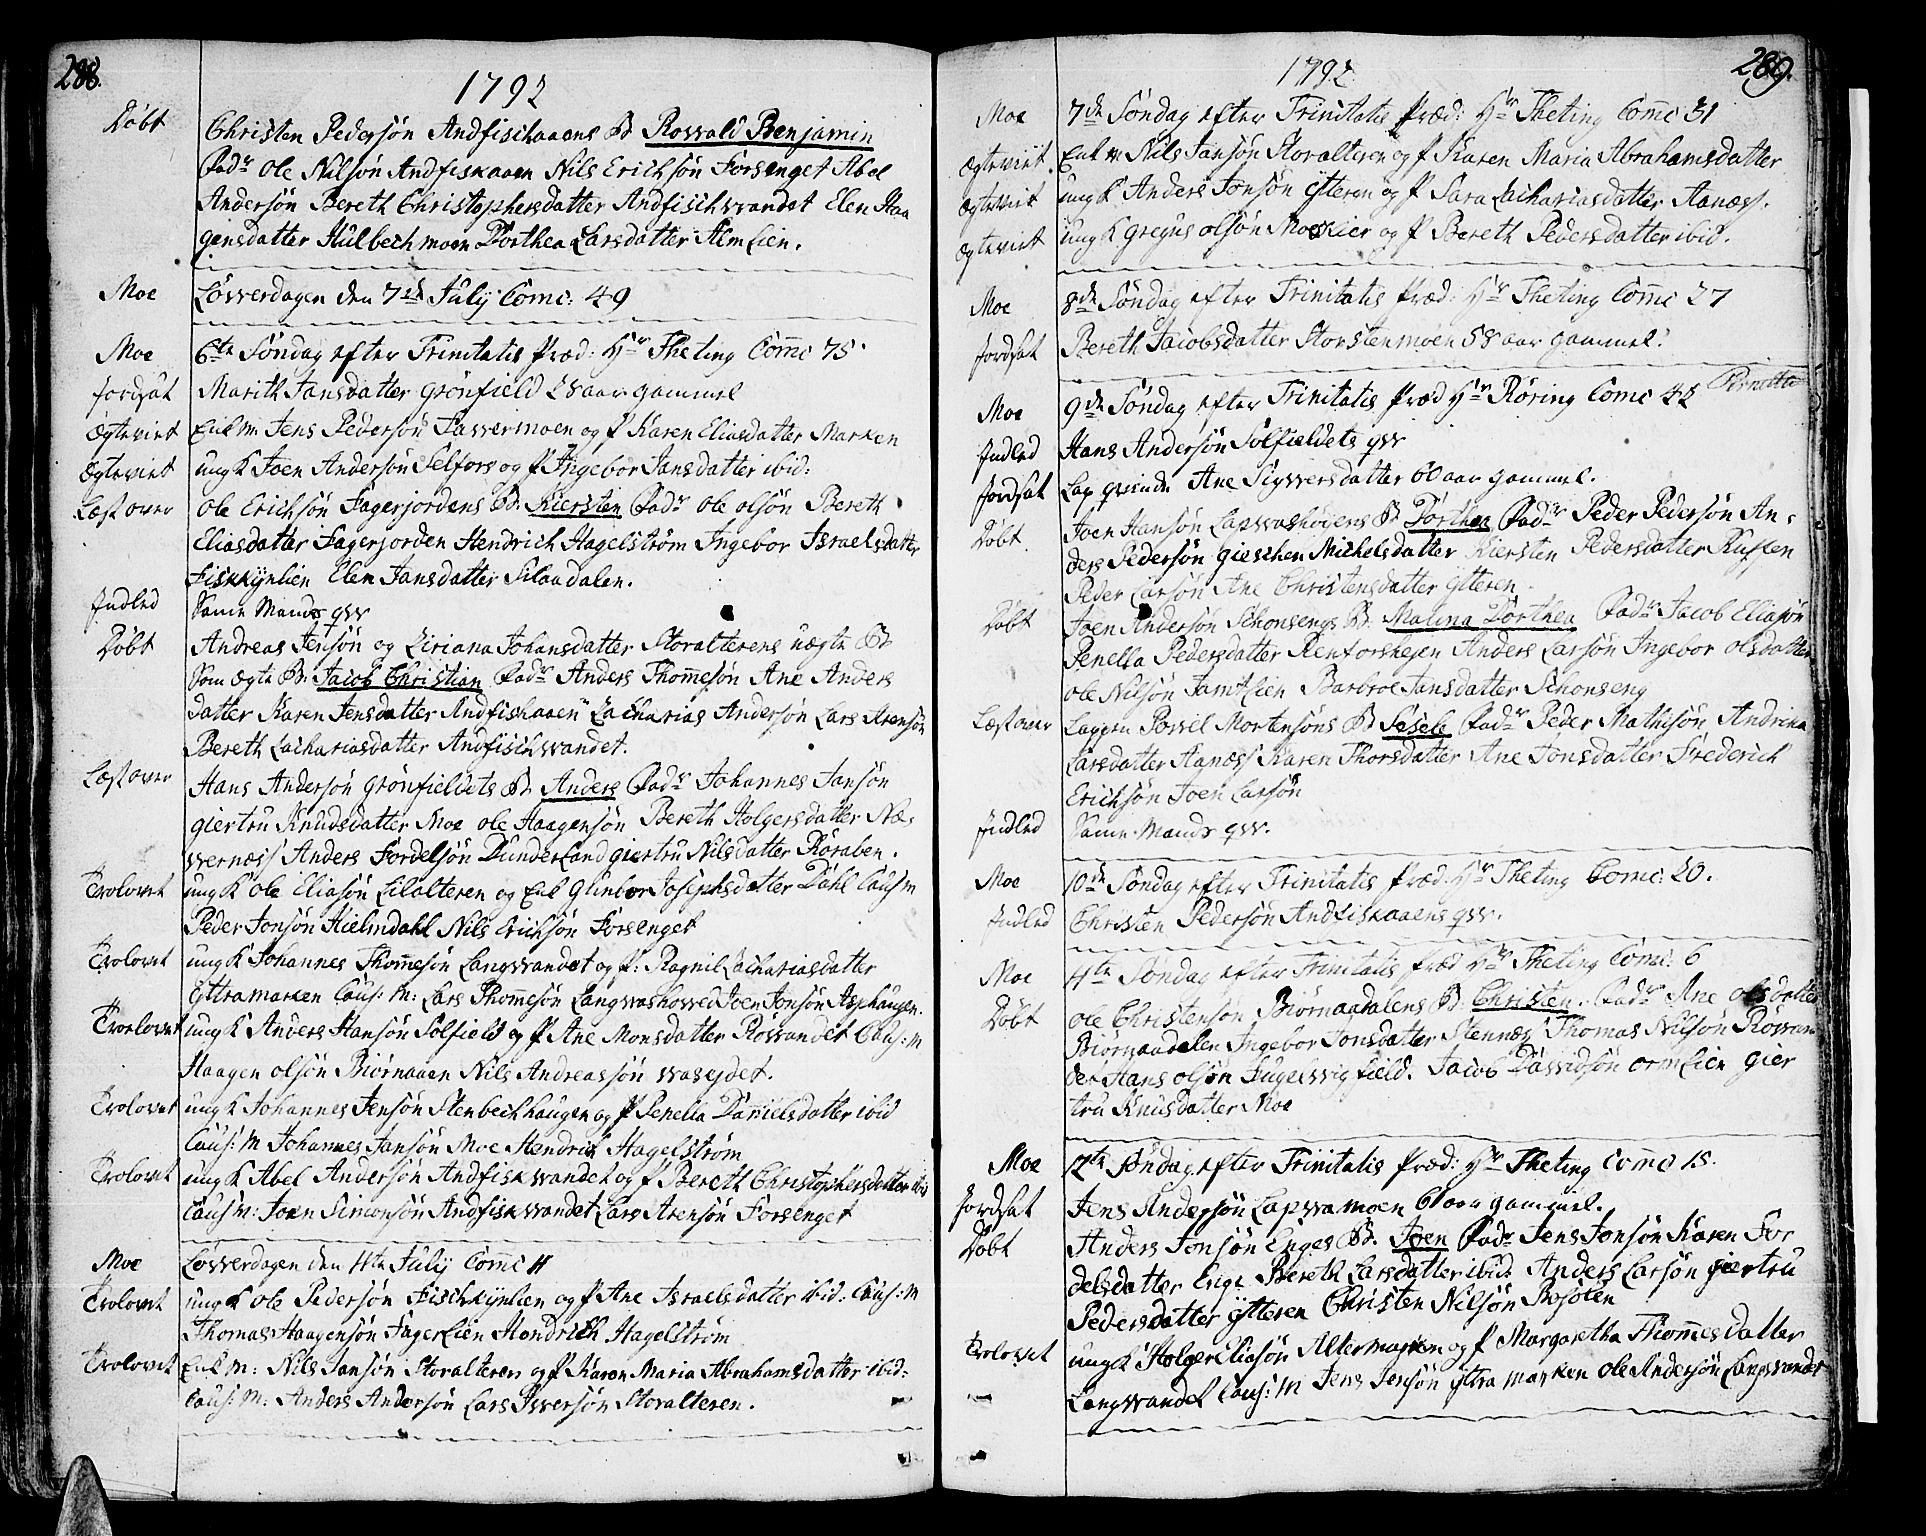 288.
1792
Døbt Christen Pedersøn Andfischaaens B. Roswald Benjamin
Fadr Ole Nilsøn Andfiskaaen Nils Erichsøn Forsenget Abel
Andersøn Bereth Christophersdatter Andfischvandet Elen Haa
gensdatter Hulbechmoen Dorthea Larsdatter Almlien.
Moe Løvverdagen den 7de July Comc: 49
Moe 6te Søndag efter Trinitatis Præd: Hr Theting Comc 75.
Jordsat Marith Jansdatter Grønfield 28 aar gammel
Ægteviet Enk m. Jens Pedersøn Tavvermoen og P Karen Eliasdatter Marken
Ægteviet ung K Joen Andersøn Selfors og P Ingebor Jansdatter ibid:
Læst over Ole Erichsøn Fagerjordens B. Kiersten Fadr Ole Olsøn Bereth
Eliasdatter Fagerjorden Hendrich Hagelstrøm Ingebor Israelsdatter
Fiskkynlien Elen Jansdatter Silaadalen.
Indled Same Mands qvv
Døbt Andreas Jensøn og Liriana Johansdatter Storalterens uægte B
Som ægte B. Jacob Christian Fadr Anders Thomesøn Ane Anders
datter Karen Jensdatter Andfiskaaen Zacharias Andersøn Lars Arensøn
Bereth Zachariasdatter Andfischvandet.
Læst over Hans Andersøn Grønfieldets B. Anders Fadr Johannes Jansøn
Giertru Knudsdatter Moe Ole Haagensøn Bereth Holgersdatter Næs
vernæss Anders Fordelsøn Dunderland Giertru Nilsdatter Røraben.
Trolovet ung K Ole Eliasøn Lilalteren og Enk Gunbor Josephsdatter Dahl Caus M
Peder Jonsøn Hielmdahl Nils Erichsøn Forsenget
Trolovet ung K Johannes Thomesøn Langvandet og P: Ragnil Zachariasdatter
Yttramarken Caus: M: Lars Thomesøn Langvashoved Joen Jonsøn Asphaugen.
Trolovet ung K Anders Hansøn Solfield og P Ane Monsdatter Røsvandet Caus: M
Haagen Olsøn Biørnaaen Nils Andreassøn Vasejdet.
Trolovet ung K Johannes Jensøn Stenbechhaugen og P Penelia Danielsdatter ibid
Caus: M Johannes Jansøn Moe Hendrich Hagelstrøm
Trolovet ung K Abel Andersøn Andfiskvandet og P Bereth Christophersdatter ibid
Caus M: Joen Simonsøn Andfiskvandet Lars Arensøn Forsenget
Moe Løvverdagen den 14te July Comc 11
Trolovet ung K Ole Pedersøn Fischkynlien og P Ane Israelsdatter ibid: Caus: M
Thomas Haagensøn Fagerlien Hendrich Hagelstrøm
Trolovet Enk M: Nils Jansøn Storalteren og P Karen Maria Abrahamsdatter ibid:
Caus: M: Anders Andersøn Lars Iversøn Storalteren.
289.
1792
Moe 7de Søndag efter Trinitatis Præd: Hr Theting Comc 31
Ægteviet. Enk m Nils Jansøn Storalteren og P Karen Maria Abrahamsdatter
Ægteviet ung K Anders Jonsøn Ytteren og P Sara Zachariasdatter Aanæss.
Ægteviet ung K Gregus Olsøn Moskier og P Bereth Pedersdatter ibid.
Moe 8de Søndag efter Trinitatis Præd: Hr Theting Comc 27
Jordsat Bereth Jacobsdatter Storstenmoen 58 aar gammel.
Moe 9de Søndag efter Trinitatis Præd Hr Røring Comc 42
Indled Hans Andersøn Solfieldets qvv
Jordsat Lap qvinde Ane Siguersdatter 60 aar gammel.
Døbt Joen Hansøn Lapvashøiens B Dorthea Fadr Peder Pedersøn An-
ders Pedersøn Gieschen Michelsdatter Kiersten Pedersdatter Kussen
Peder Larsøn Ane Christensdatter Ytteren
Døbt Joen Andersøn Schonsengs B. Malena Dorthea Fadr Jacob Eliasøn
Penella Pedersdatter Renforshejen Anders Larsøn Ingebor Olsdatter
Ole Nilsøn Jamtlien Barbroe Jansdatter Schonseng
Læst over Lappen Povel Mortensøns B Sesele Fadr Peder Mathisøn Andrina
Larsdatter Aanæss Karen Thorsdatter Ane Jonsdatter Frederich
Erichsøn Joen Larsøn
Indled Same Mands qvv.
Moe 10de Søndag efter Trinitatis Præd: Hr Theting Comc: 20.
Indled Christen Pedersøn Andfiskaaens qvv.
Moe 11te Søndag efter Trinitatis Præd Hr Theting Comc: 6
Døbt Ole Christensøn Biørnaadalens B. Christen. Fadr Ane Olsdatter
Biørnaadalen Ingebor Jonsdatter Stennæs Thomas Nilsøn Røsvan
det Hans Olsøn Fugelvigfield. Jacob Davidsøn Ormlien Gier
tru Knusdatter Moe
Moe 12te Søndag efter Trinitatis Præd: Hr Theting Comc 15.
Jordsat Jens Andersøn Lapvamoen 61 aar gammel.
Døbt Anders Jonsøn Enges B. Joen Fadr Jens Jonsøn Karen For
delsdatter Enge Bereth Larsdatter ibid: Anders Larsøn Giertru
Pedersdatter Ytteren Christen Nilsøn Bosoten
Trolovet ung K Holger Eliasøn Altermarken og P Margaretha Thomesdatter
Langvandet Caus: M Jens Jensøn Yttramarken Ole Andersøn Langvandet